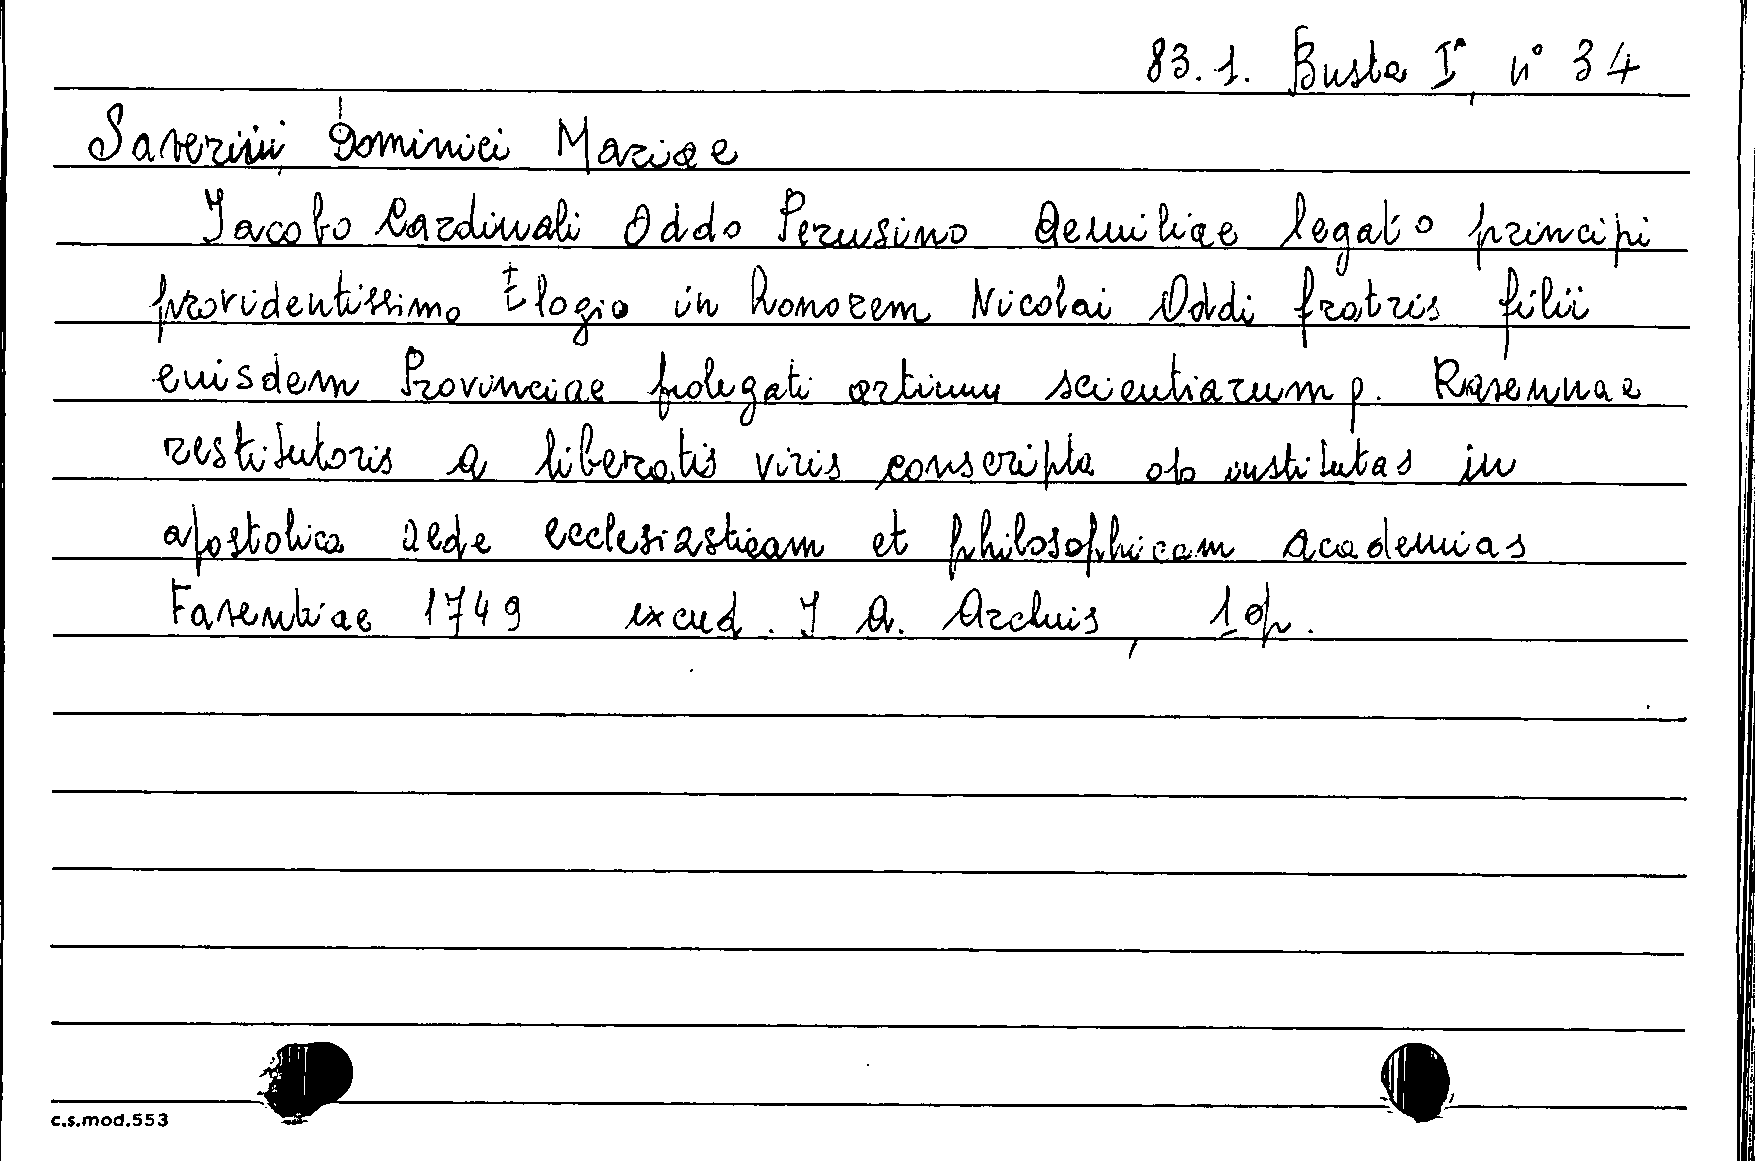 83.1. Busta Iª, n° 34
Saverini, Dominici Mariae
Jacobo Cardinali Oddo Perusino Aemiliae legato principi
providentissimo Elogio in honorem Nicolai Oddi fratris filii
euisdem Provinciae prolegati artium scientiarum p. Ravennae
restitutoris a liberatis viris conscripta ob institutas in
apostolica aede ecclesiasticam et philosophicam academias
Faventiae 1749 excud. J A. Archiis, 1 op.
c.s.mod.553